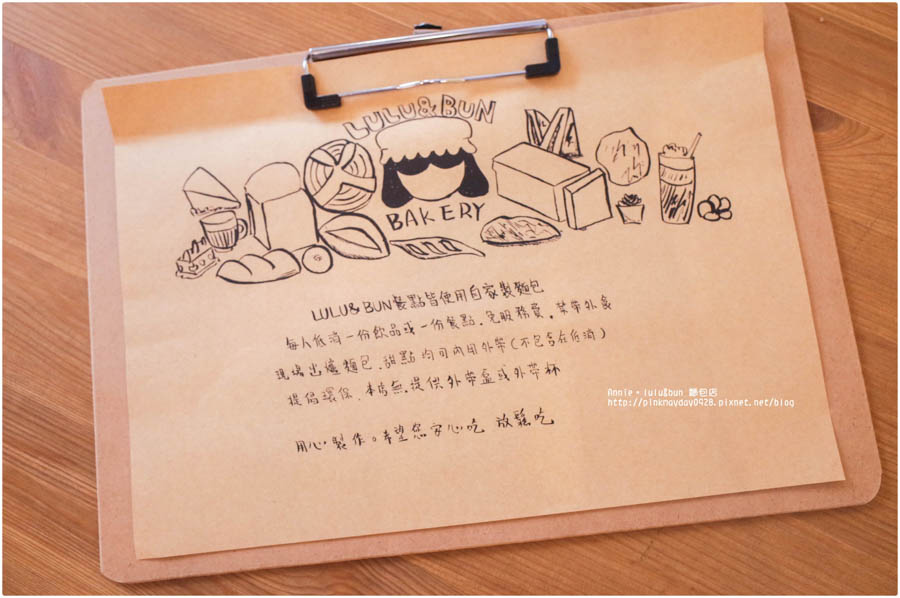 LULU&BUN
BAKERY
LULU&BUN餐點皆使用自家製麵包
每人低消一份飲品或一份餐點.免服務費。禁帶外食
現場出爐麵包.甜點均可內用外帶(不包含在低消)
提倡環保.本店無提供外帶盒或外帶杯
用心製作。希望您安心吃 放鬆吃
Annie。lulu&bun 麵包店
http://pinkmayday0928.pixnet.net/blog